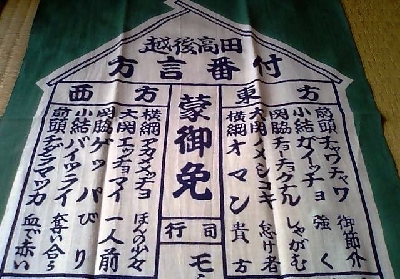 越後高田
方言番付
東方
前頭 チャワチャワ 御節介
小結 ガイッチョ 強く
関脇 チョチョナル しゃがむ
大関 ノメシコキ 怠け者
横綱 オマン 貴方
蒙御免
行司
西方
横綱 ほんの
大関 エッチョマイ 一人前
関脇 ゲッパ びり
小結 奪い合う
前頭 チンダラマッカ 血で赤い